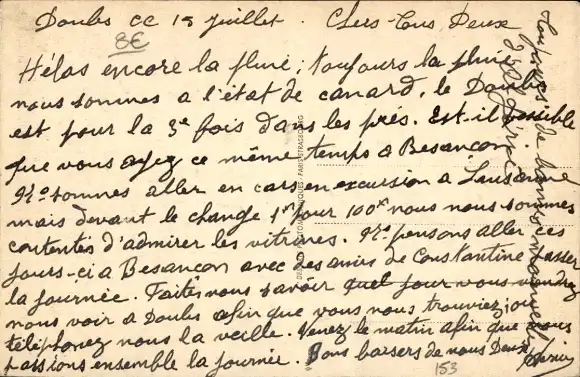 Doubs ce 15 juillet . Chers Tous Deux
8€
Hélas encore la pluie, toujours la pluie
nous sommes a l'état de canard, le Doubs
est pour la 3e fois dans les prés. Est-il possible
que vous ayez ce même temps a Besançon
Ns sommes aller en cars en excursion a Lausanne
mais devant le change 1 pour 100 nous nous sommes
contentés d'admirer les vitrines. Ns pensons aller ces
jours-ci a Besancon avec des amis de Constantine passer
la journée. Faites nous savoir quel jour vous viendrez
nous voir a Doubs afin que vous nous trouviez, ou
téléphonez nous la veille. Venez le matin afin que nous
passions ensemble la journée. Bons baisers de nous Deux
153
Toujours de bonnes nouvelles
d'Algérie
PARIS-STRASBOURG